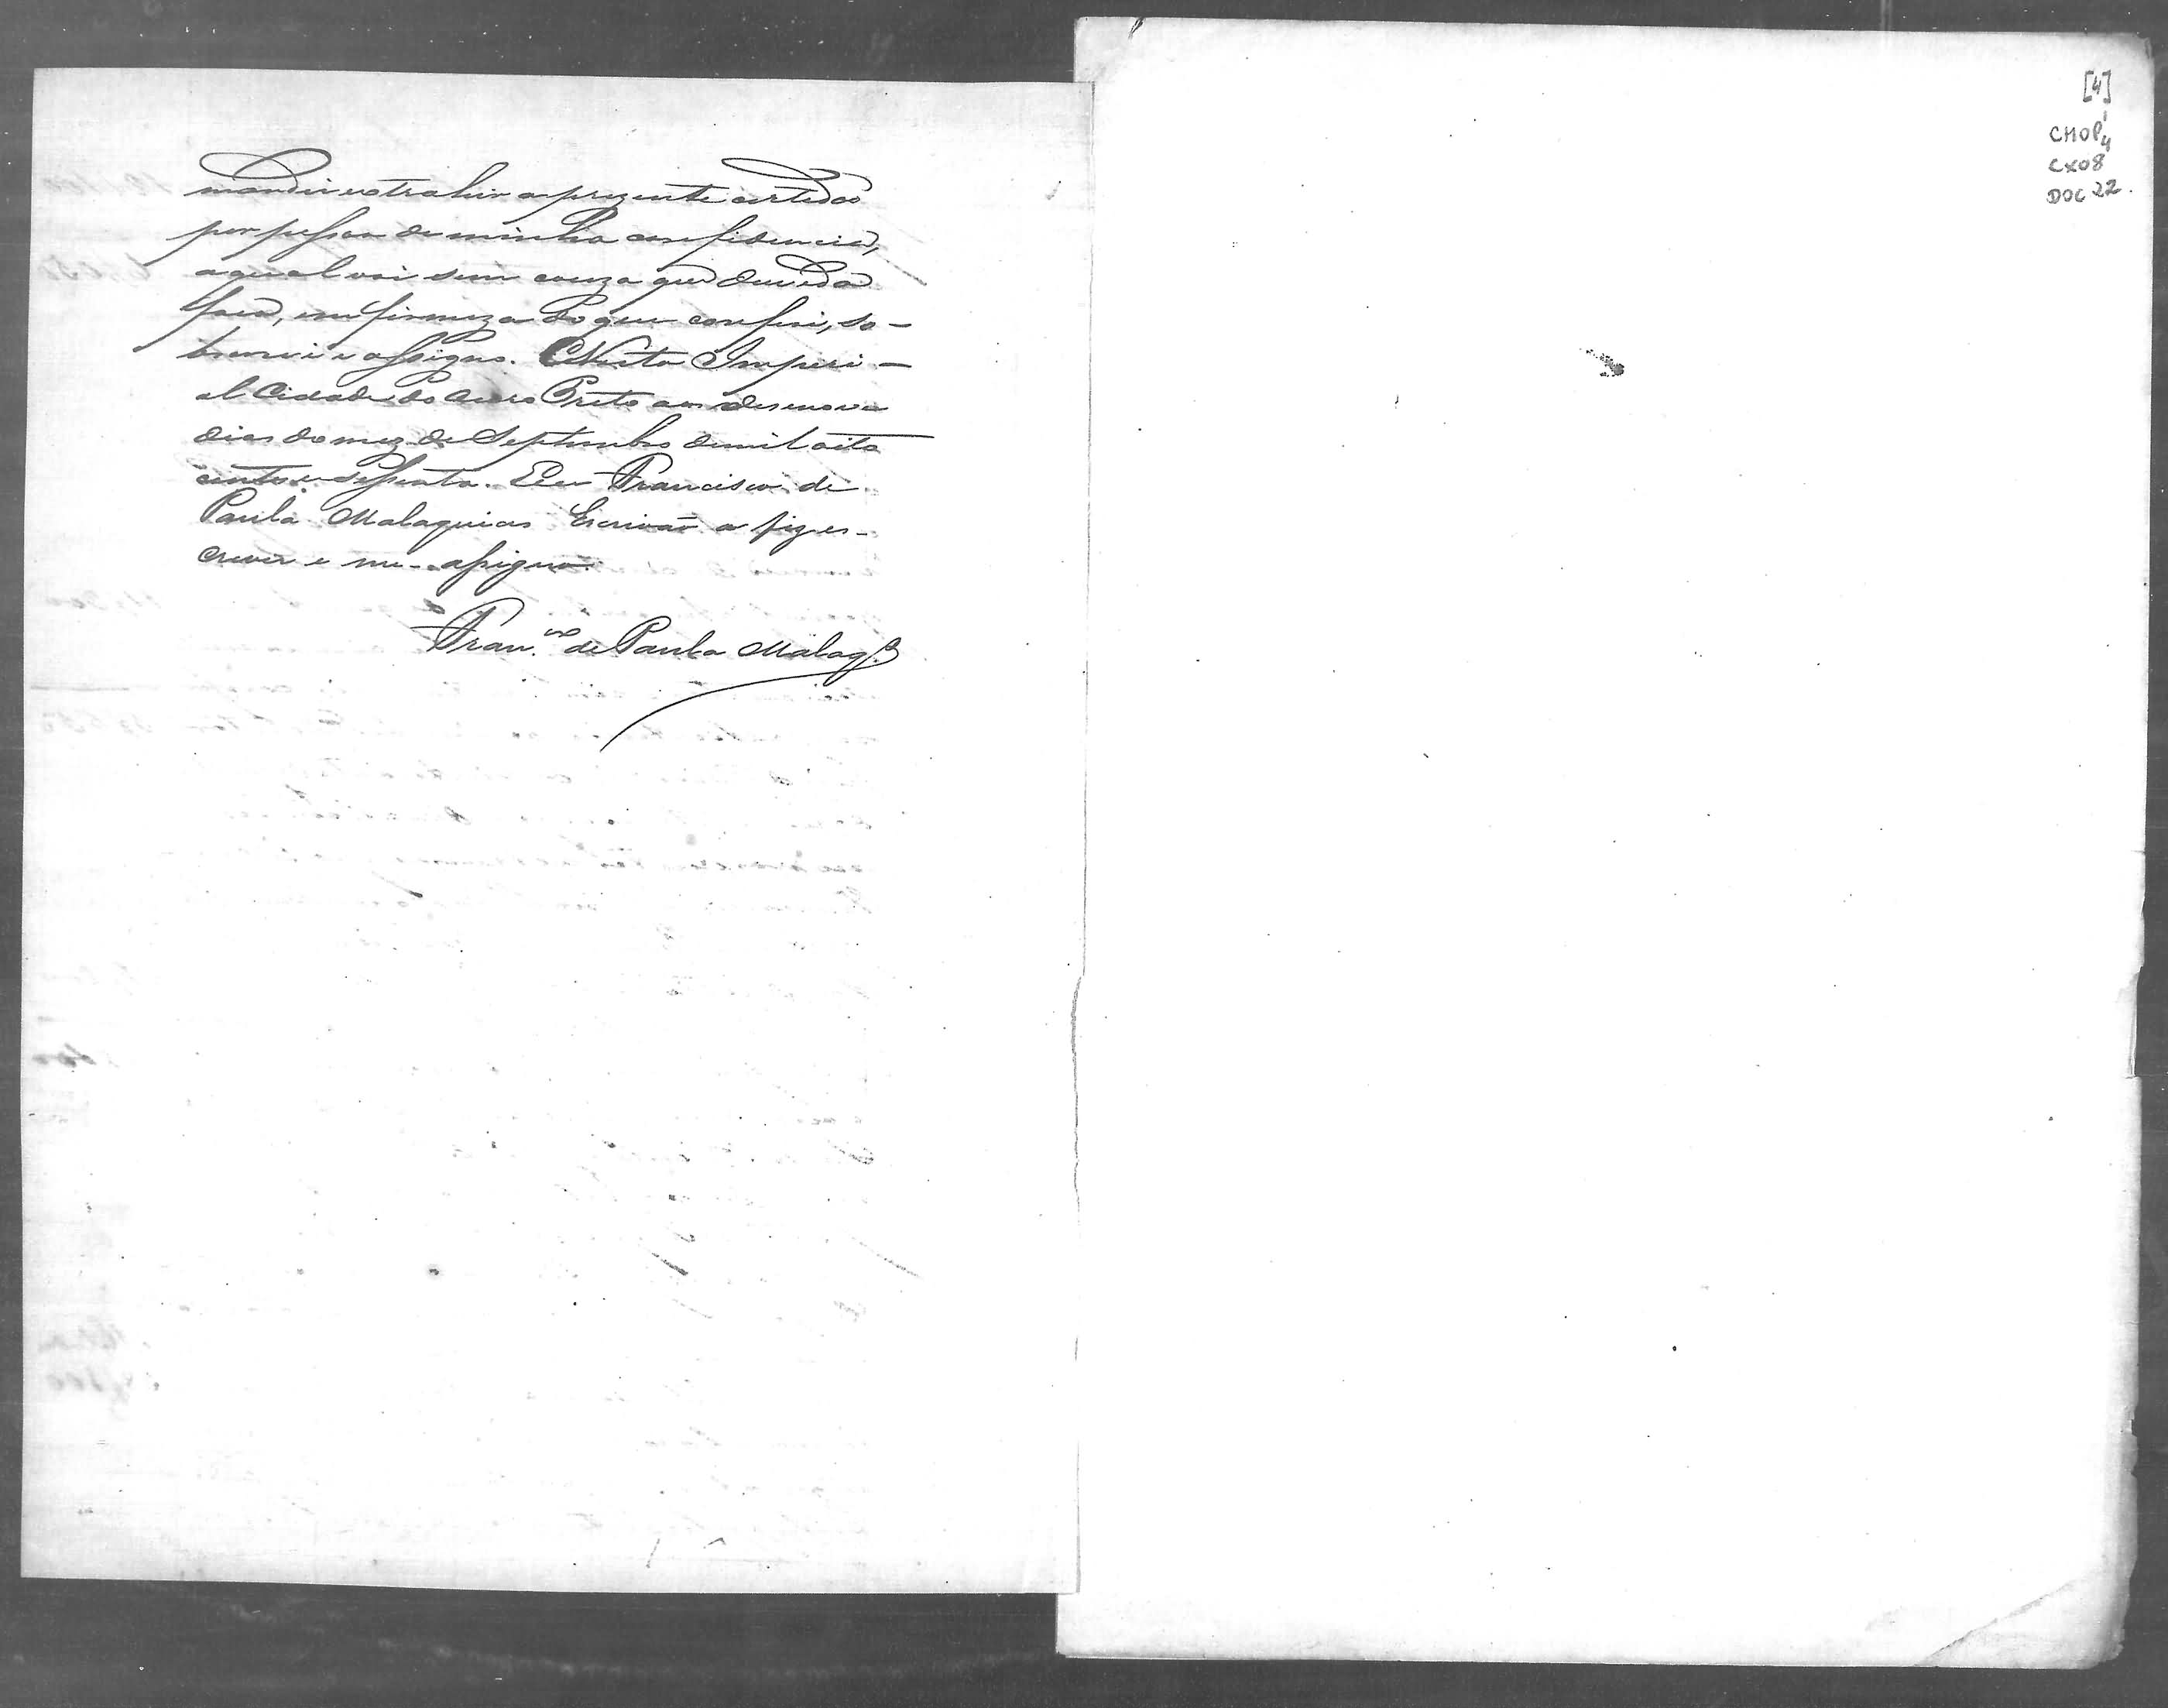 mandei extrahir a prezente certedão
por pessoa de minha confidencia,
a qual vai sem couza que duvida
faça, em firmeza do que conferi, so-
bscrevi e assigno. Nesta Imperi-
al Cidade do Ouro Preto aos desenove
dias do mez de Septembro de mil oito
centos e sessenta. Eu Francisco de
Paula Malaquias Escrivão a fiz es-
crever e me assigno.
Fran.co de Paula Malaq.s
[4]
CMOP
CX08
DOC 22.